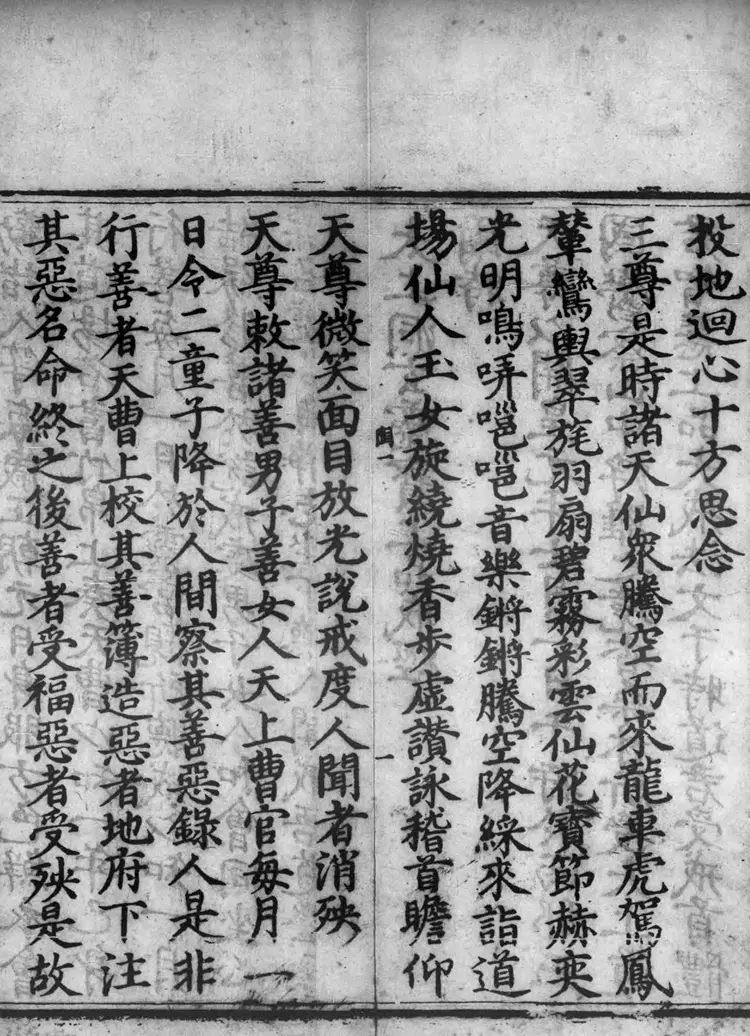 投地迴心十方思念
三尊是時諸天仙衆騰空而來龍車虎駕鳳
輦鸞輿翠旄羽扇碧霧彩雲仙花寶節赫奕
光明鳴哢嗈嗈音樂鏘鏘騰空降綵來詣道
場仙人玉女旋繞燒香步虛讚詠稽首瞻仰
天尊微笑面目放光說戒度人聞者消殃
天尊敕諸善男子善女人天上曹官每月一
日令二童子降於人間察其善惡錄人是非
行善者天曹上校其善簿造惡者地府下注
其惡名命終之後善者受福惡者受殃是故